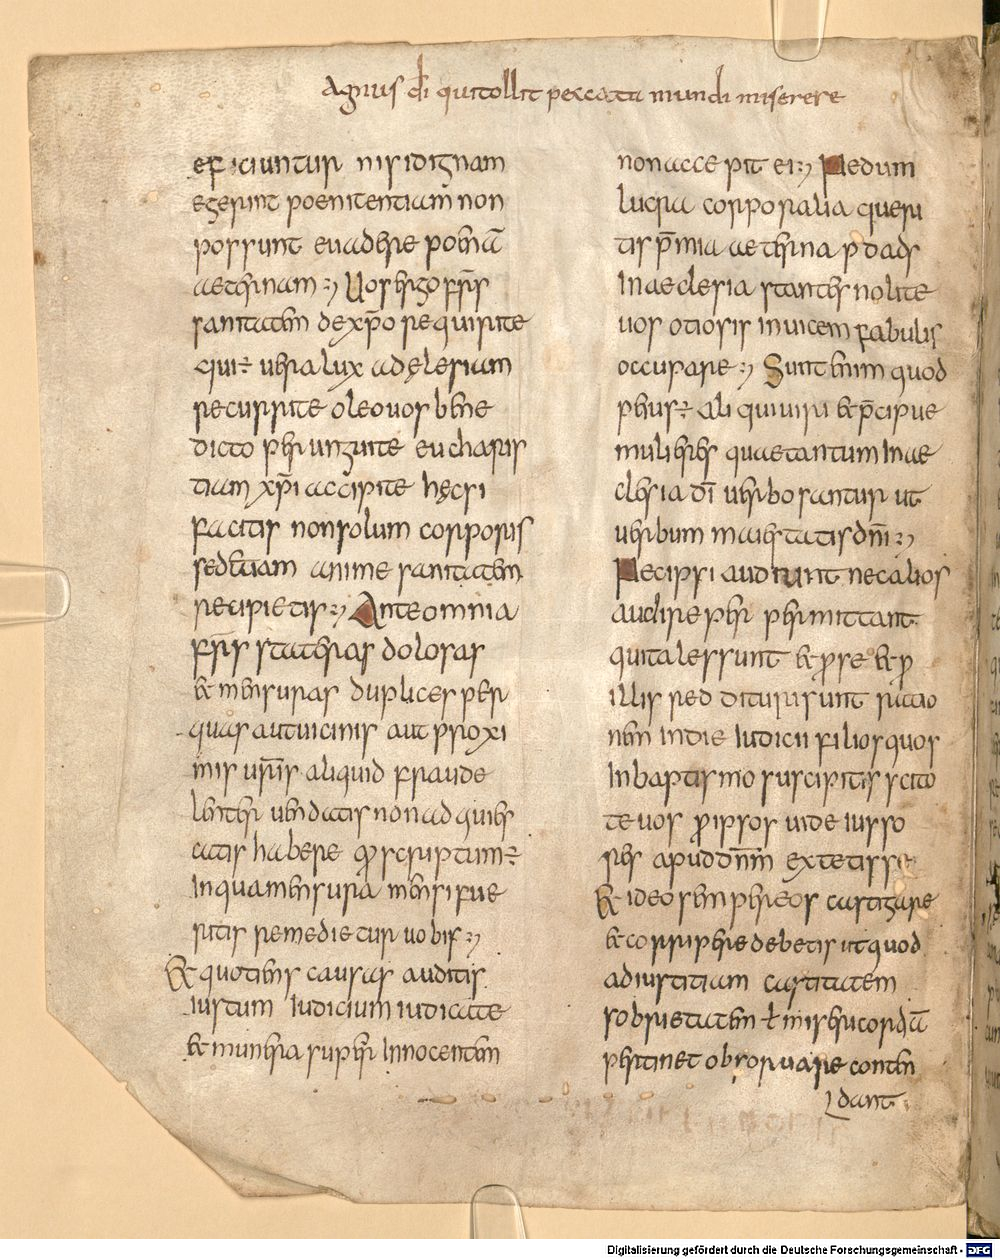 Agnus di qui tollit peccata mundi miserere
efficiuntur nisi dignam
egerint poenitentiam non
possunt euadere poenā
aeternam :, Uos ergo frs̄
sanitatem de xpō requirite
qui ÷ uera lux ad eclesiam
recurrite oleo uos bene
dicto perunguite eucharis
tiam xpī accipite hęc si
facitis non solum corporis
sed etiam anime sanitatem
recipietis :, Ante omnia
frs̄ stateras dolosas
et mensuras duplices per
quas aut uicinis aut proxi
mis urīs aliquid fraude
lenter uendatis non adquies
catis habere quod scriptum ÷
In qua mensura mensi fue
ritis remedietur uobis :,
Et quotiens causas auditis
iustum iudicium iudicate
et munera super innocentem
non accepit ei :, Ne dum
lucra corporalia queri
tis p̄mia aeterna perdads
In aeclesia stantes nolite
uos otiosis inuicem fabulis
occupare :, Sunt enim quod
peius ÷ aliqui uiri et p̄cipue
mulieres quae tantum in ae
clesia dī uerbosantur ut
uerbum maiestatis dnī :,
Nec ipsi audiunt nec alios
audire per permittant
qui tales sunt et pro se et pro
illis reddituri sunt ratio
nem in die iudicii filios quos
In baptismo suscipitis scito
te uos pro ipsos uideiusso
res apud dn̄m extetisse
Et ideo semper eos castigare
et corripere debetis ut quod
ad iustitiam castitatem
sobrietatem ł misericordiā
pertinet obseruare conten
dant
Digitalisierung gefördert durch die Deutsche Forschungsgemeinschaft - DFG